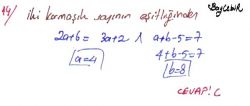 14/ iki karmaşık sayının eşitliğinden
2a+6 = 3a+2 ∧ a+b-5=7
a=4
4+b-5=7
b=8
CEVAP: C